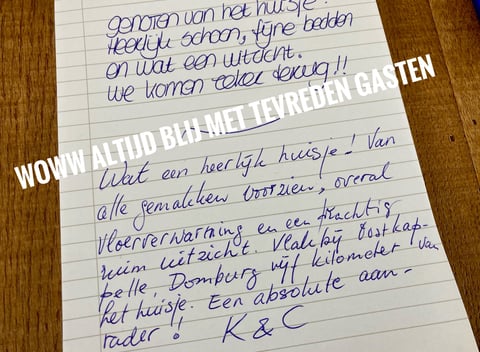 genoten van het huisje!
Heerlijk schoon, fijne bedden
en wat een uitzicht.
We komen zeker terug!!
WOWW ALTIJD BLIJ MET TEVREDEN GASTEN
Wat een heerlijk huisje! Van
alle gemakken voorzien, overal
vloerverwarming en een prachtig
ruim uitzicht. Vlakbij Oostkap-
pelle, Domburg vijf kilometer van
het huisje. Een absolute aan-
rader! K & C